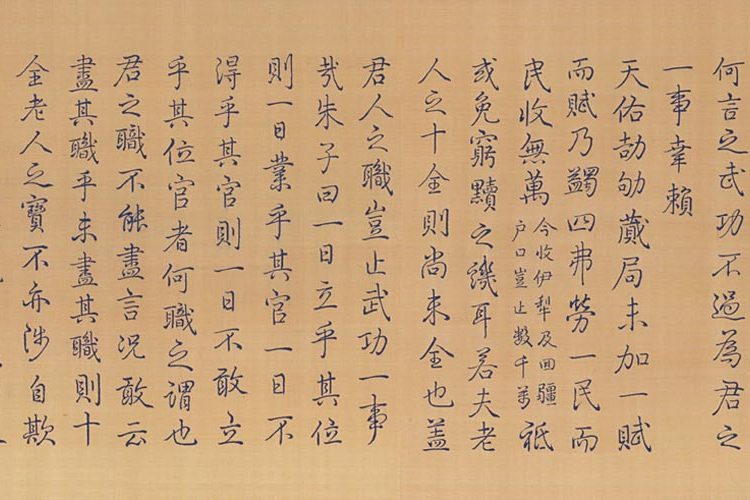 何言之武功不過為君之
一事幸賴
天佑劼劬蕆局未加一賦
而賦乃蠲四弗勞一民而
民收無萬今收伊犁及回疆戶口豈止數千萬祗
或免窮黷之譏耳若夫老
人之十全則尚未全也蓋
君人之職豈止武功一事
哉朱子曰一日立乎其位
則一日業乎其官一日不
得乎其官則一日不敢立
乎其位官者何職之謂也
君之職不能盡言況敢云
盡其職乎未盡其職則十
全老人之寶不亦涉自欺